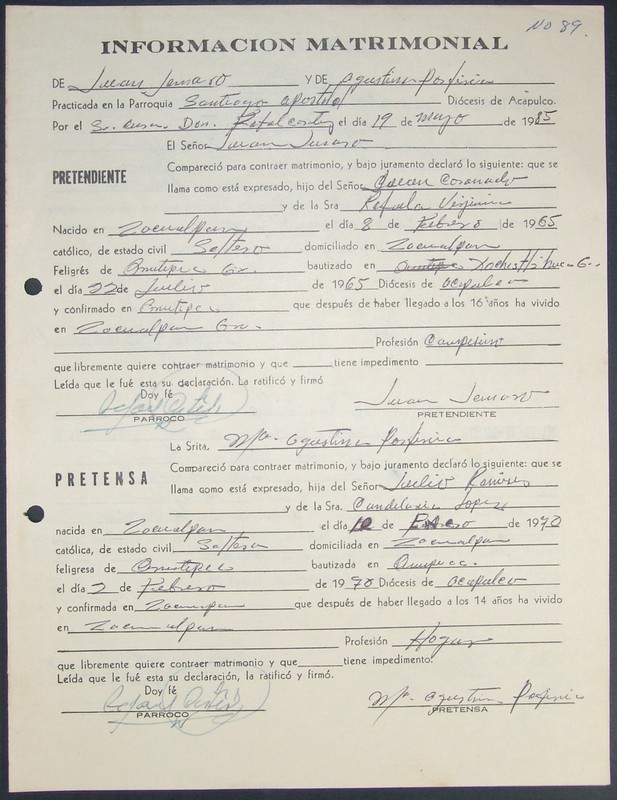 No 89.
INFORMACION MATRIMONIAL
DE Juan Jenaro Y DE Agustina Porfiria
Practicada en la Parroquia Santiago Apostol Diócesis de Acapulco.
Por el Sr. Cura. Don. Rafal el día 19 de Mayo de 1985
El Señor Juan Jenaro
PRETENDIENTE
Compareció para contraer matrimonio, y bajo juramento declaró lo siguiente: que se
llama como está expresado, hijo del Señor
y de la Sra Refaela
Nacido en Zacualpan el día 8 de Febrero de 1965
católico, de estado civil Soltero domiciliado en Zacualpan
Feligrés de Ometepec Gro bautizado en
el día 22 de Julio de 1965 Diócesis de acapulco
y confirmado en Ometepec que después de haber llegado a los 16 años ha vivido
en Zacualpan Gro.
Profesión Campesino
que libremente quiere contraer matrimonio y que tiene impedimento
Leída que le fué esta su declaración. La ratificó y firmó
Doy fé
Juan Jenaro
PARROCO
PRETENDIENTE
La Srita. Ma. Agustina Porfiria
PRETENSA
Compareció para contraer matrimonio, y bajo juramento declaró lo siguiente: que se
llama como está expresado, hija del Señor Julio Ramires
y de la Sra. Candelaria Lopez
nacida en Zacualpan el día de Enero de 1970
católica, de estado civil Soltera domiciliada en Zacualpan
feligresa de Ometepec bautizada en
el día 2 de Febrero de 1970 Diócesis de acapulco
y confirmada en Zacualpan que después de haber llegado a los 14 años ha vivido
en Zacualpan
Profesión Hogar
que libremente quiere contraer matrimonio y que tiene impedimento.
Leída que le fué esta su declaración, la ratificó y firmó.
Doy fé
Ma. Agustina Porfiria
PARROCO
PRETENSA